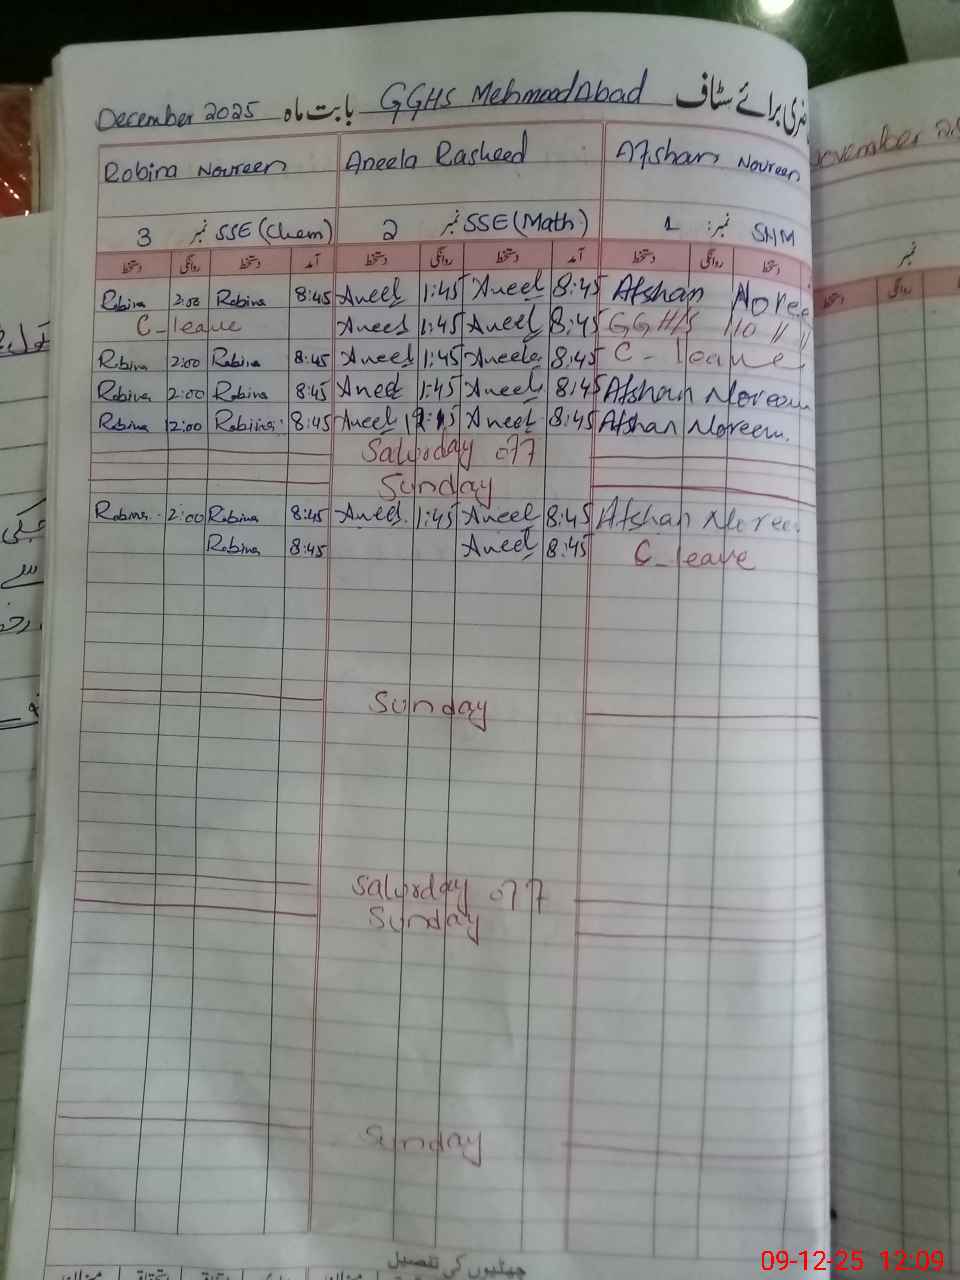 December 2025 بابت ماہ GGHS Mehmood Abad حاضری برائے سٹاف
Robina Noureen Aneela Rasheed Afshan Noureen
3 نمبر SSE (Chem) 2 نمبر SSE (Math) 1 نمبر: SHM
دستخط روانگی دستخط آمد دستخط روانگی دستخط آمد دستخط روانگی دستخط
Robina 2:00 Robina 8:45 Aneel 1:45 Aneel 8:45 Afshan Noree
C-leave Aneel 1:45 Aneel 8:45 GGHS
Robina 2:00 Robina 8:45 Aneel 1:45 Aneela 8:45 C-leave
Robina 2:00 Robina 8:45 Aneel 1:45 Aneel 8:45 Afshan Noreen
Robina 12:00 Robina 8:45 Aneel Aneel 8:45 Afshan Noreen.
Saturday off
Sunday
Robina 2:00 Robina 8:45 Aneel 1:45 Aneel 8:45 Afshan Noree
Robina 8:45 Aneel 8:45 C-leave
Sunday
Saturday off
Sunday
Sunday
چھٹیوں کی تفصیل
November
نمبر
روانگی
09-12-25 12:09